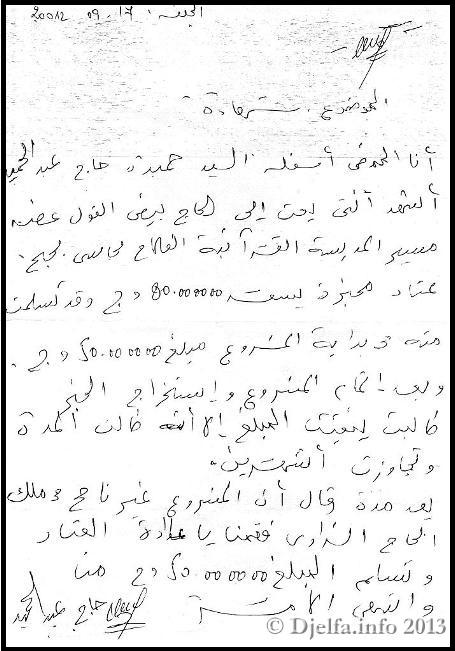 الجلفة: 17. 09. 2012
الموضوع: شهادة
أنا الممضي أسفله السيد حميدة حاج عبد الحميد
أشهد أنني بعت إلى الحاج بيض القول عضو
مسير المدرسة القرآنية الفلاح محاسي بحبح.
عتاد مخبزة بسعر 80.000000 دج وقد تسلمت
منه في بداية المشروع مبلغ 20.000000 دج.
وبعد إتمام المشروع وإستخراج الخبز
طالبت ببقية المبلغ إلا أنه طالت المدة
وتجاوزت الشهرين.
بعد مدة قال أن المشروع غير ناجح وملك
الحاج فقمنا بإعادة العتاد
وتسلم المبلغ 20.000000 دج منا
وانتهى الأمر حاج عبد الحميد
© Djelfa.info 2013